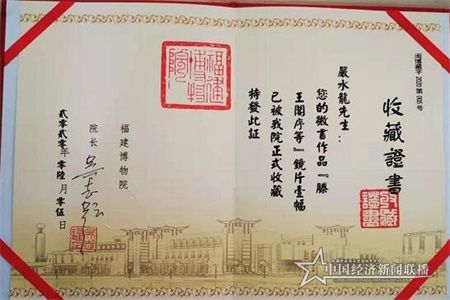 收藏證書
收藏證書
嚴水龍先生：
您的微書作品『滕
王閣序等』鏡片壹幅
已被我院正式收藏
特發此証
福建博物院
福建博物院
院长
貳零貳零年零陸月零伍日
中国经济新闻联播